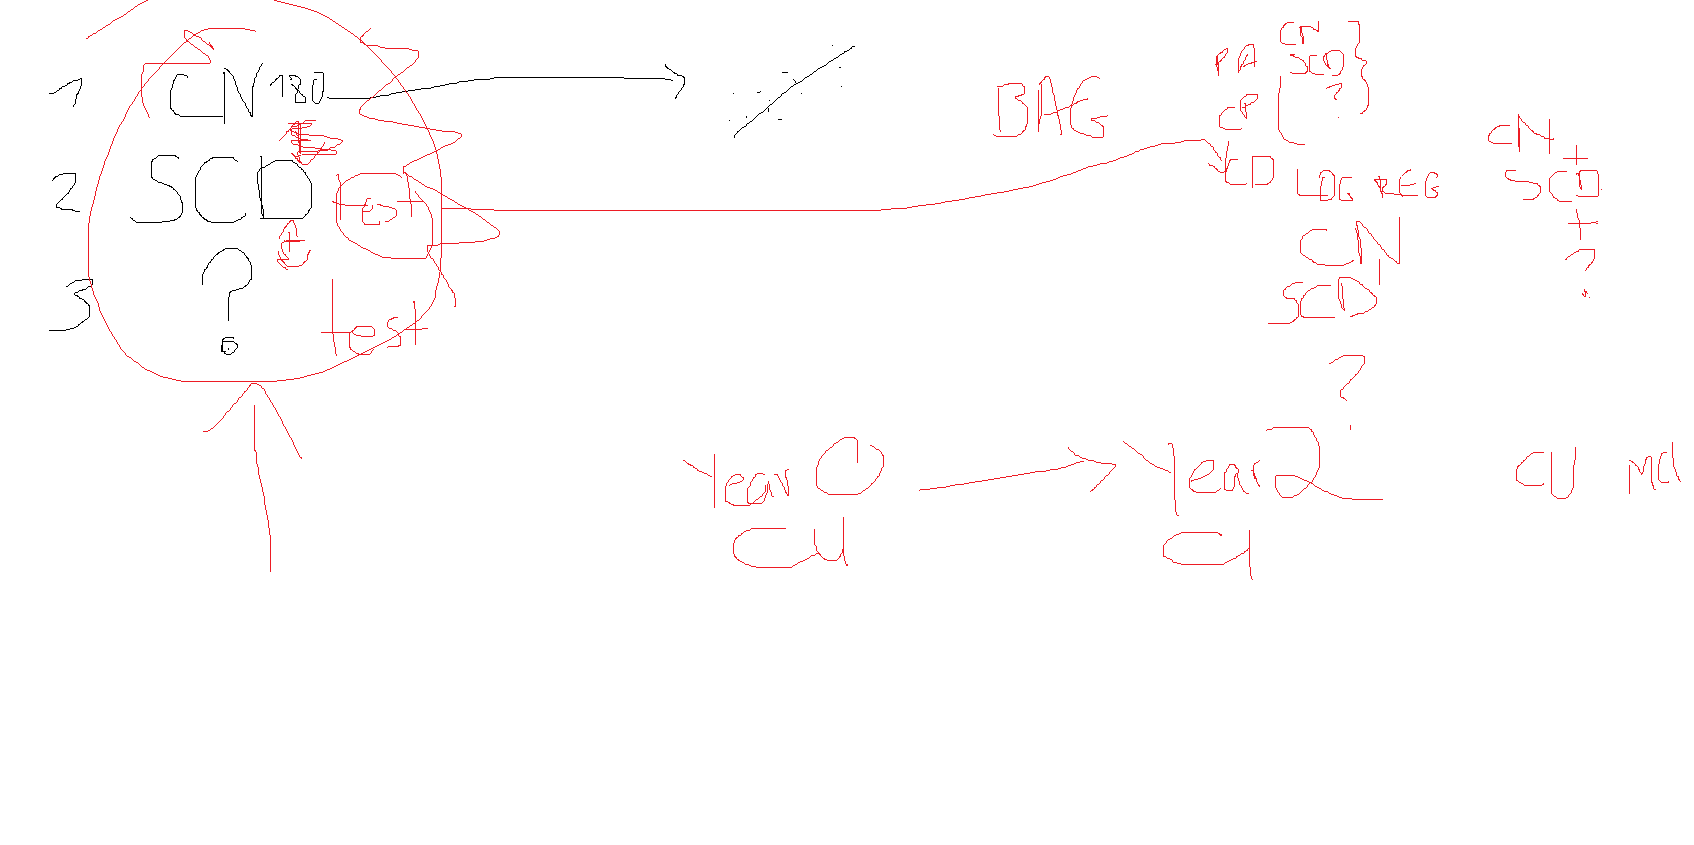 1 CN 180
2 SCD test
t
3 ?
test
BAG
PA CN
SCD
?
CP
CD LOG REG
CN
SCD
?
CN
+
SCD
+
?
Year 0
CU
Year 2
CU Md